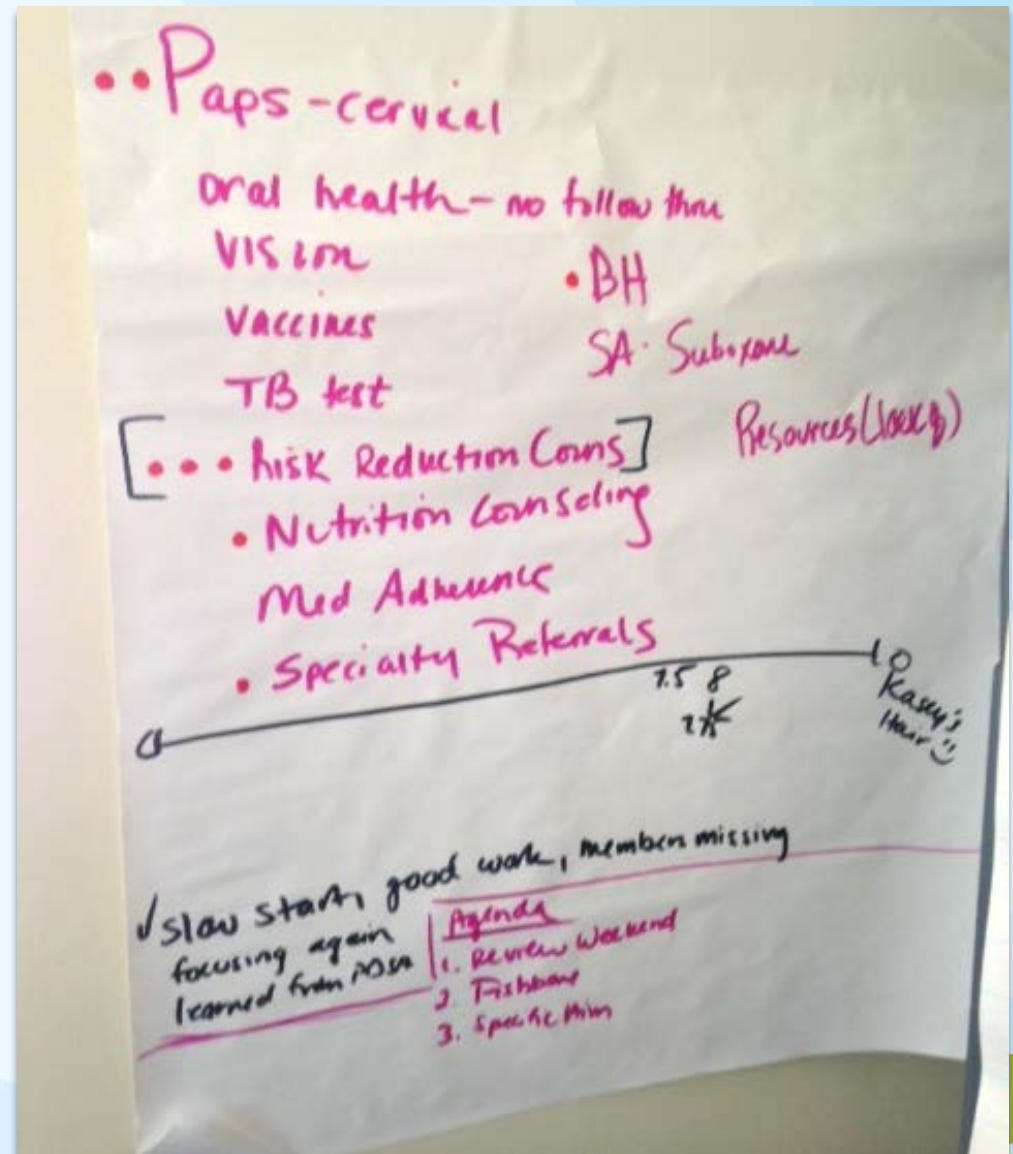 •• Paps - cervical
oral health - no follow thru
Vision
• BH
Vaccines
SA. Suboxone
TB test
Resources (lack of)
[••• Risk Reduction Couns]
• Nutrition Counseling
Med Adherence
• Specialty Referrals
0 7.5 8 10
Kasey's
Hair ☺
✓ slow start, good work, members missing
focusing again
learned from PDSA
Agenda
1. Review Weekend
2. Fishbone
3. Specific Aim